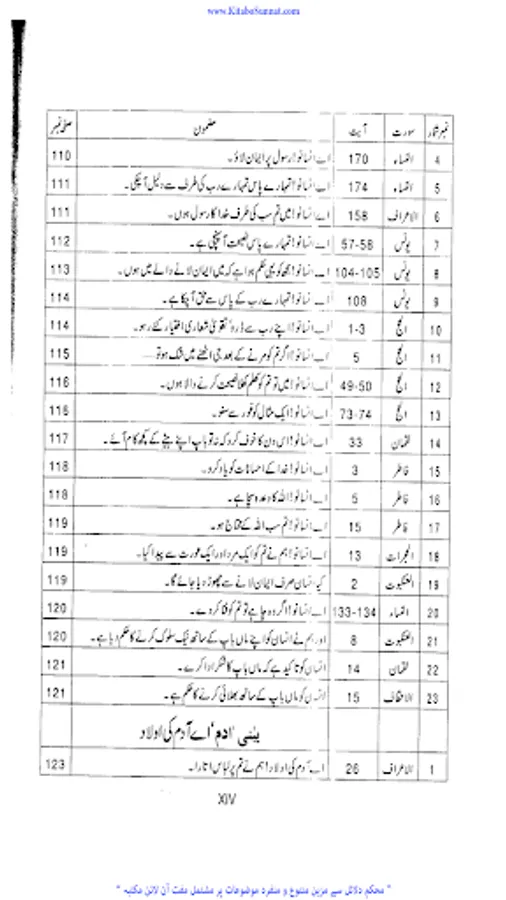 www.KitaboSunnat.com
نمبرشمار سورت آیت مضمون صفحہ نمبر
4 النساء 170 اے انسانو! رسول پر ایمان لاؤ۔ 110
5 النساء 174 اے انسانو! تمہارے پاس تمہارے رب کی طرف سے دلیل آچکی۔ 111
6 الاعراف 158 اے انسانو! میں تم سب کی طرف خدا کا رسول ہوں۔ 111
7 یونس 57-58 اے انسانو! تمہارے پاس نصیحت آ پہنچی ہے۔ 112
8 یونس 104-105 اے انسانو! مجھ کو یہی حکم ہوا ہے کہ میں ایمان لانے والے میں ہوں۔ 113
9 یونس 108 اے انسانو! تمہارے رب کے پاس سے حق آ چکا ہے۔ 114
10 الحج 1-3 اے انسانو! اپنے رب سے ڈرو، تقویٰ شعاری اختیار کئے رہو۔ 114
11 الحج 5 اے انسانو! اگر تم کو مرنے کے بعد جی اٹھنے میں شک ہو تو 115
12 الحج 49-50 اے انسانو! میں تو تم کو کھلم کھلا نصیحت کرنے والا ہوں۔ 116
13 الحج 73-74 اے انسانو! ایک مثال کو غور سے سنو۔ 116
14 لقمان 33 اے انسانو! اس دن کا خوف کرو کہ نہ تو باپ اپنے بیٹے کے کچھ کام آئے۔ 117
15 فاطر 3 اے انسانو! خدا کے احسانات کو یاد کرو۔ 118
16 فاطر 5 اے انسانو! اللہ کا وعدہ سچا ہے۔ 118
17 فاطر 15 اے انسانو! تم سب اللہ کے محتاج ہو۔ 119
18 الحجرات 13 اے انسانو! ہم نے تم کو ایک مرد اور ایک عورت سے پیدا کیا۔ 119
19 العنکبوت 2 کیا انسان صرف ایمان لانے سے چھوڑ دیا جائے گا۔ 119
20 النساء 133-134 اے انسانو! اگر وہ چاہے تو تم کو فنا کر دے۔ 120
21 العنکبوت 8 اور ہم نے انسان کو اپنے ماں باپ کے ساتھ نیک سلوک کرنے کا حکم دیا ہے۔ 120
22 لقمان 14 انسان کو تاکید ہے کہ ماں باپ کا شکر ادا کرے۔ 121
23 الاحقاف 15 انسان کو ماں باپ کے ساتھ بھلائی کرنے کا حکم ہے۔ 121
یٰبنی ادم، اے آدم کی اولاد
1 الاعراف 26 اے آدم کی اولاد! ہم نے تم پر لباس اتارا۔ 123
XIV
" محکم دلائل سے مزین متنوع و منفرد موضوعات پر مشتمل مفت آن لائن مکتبہ "